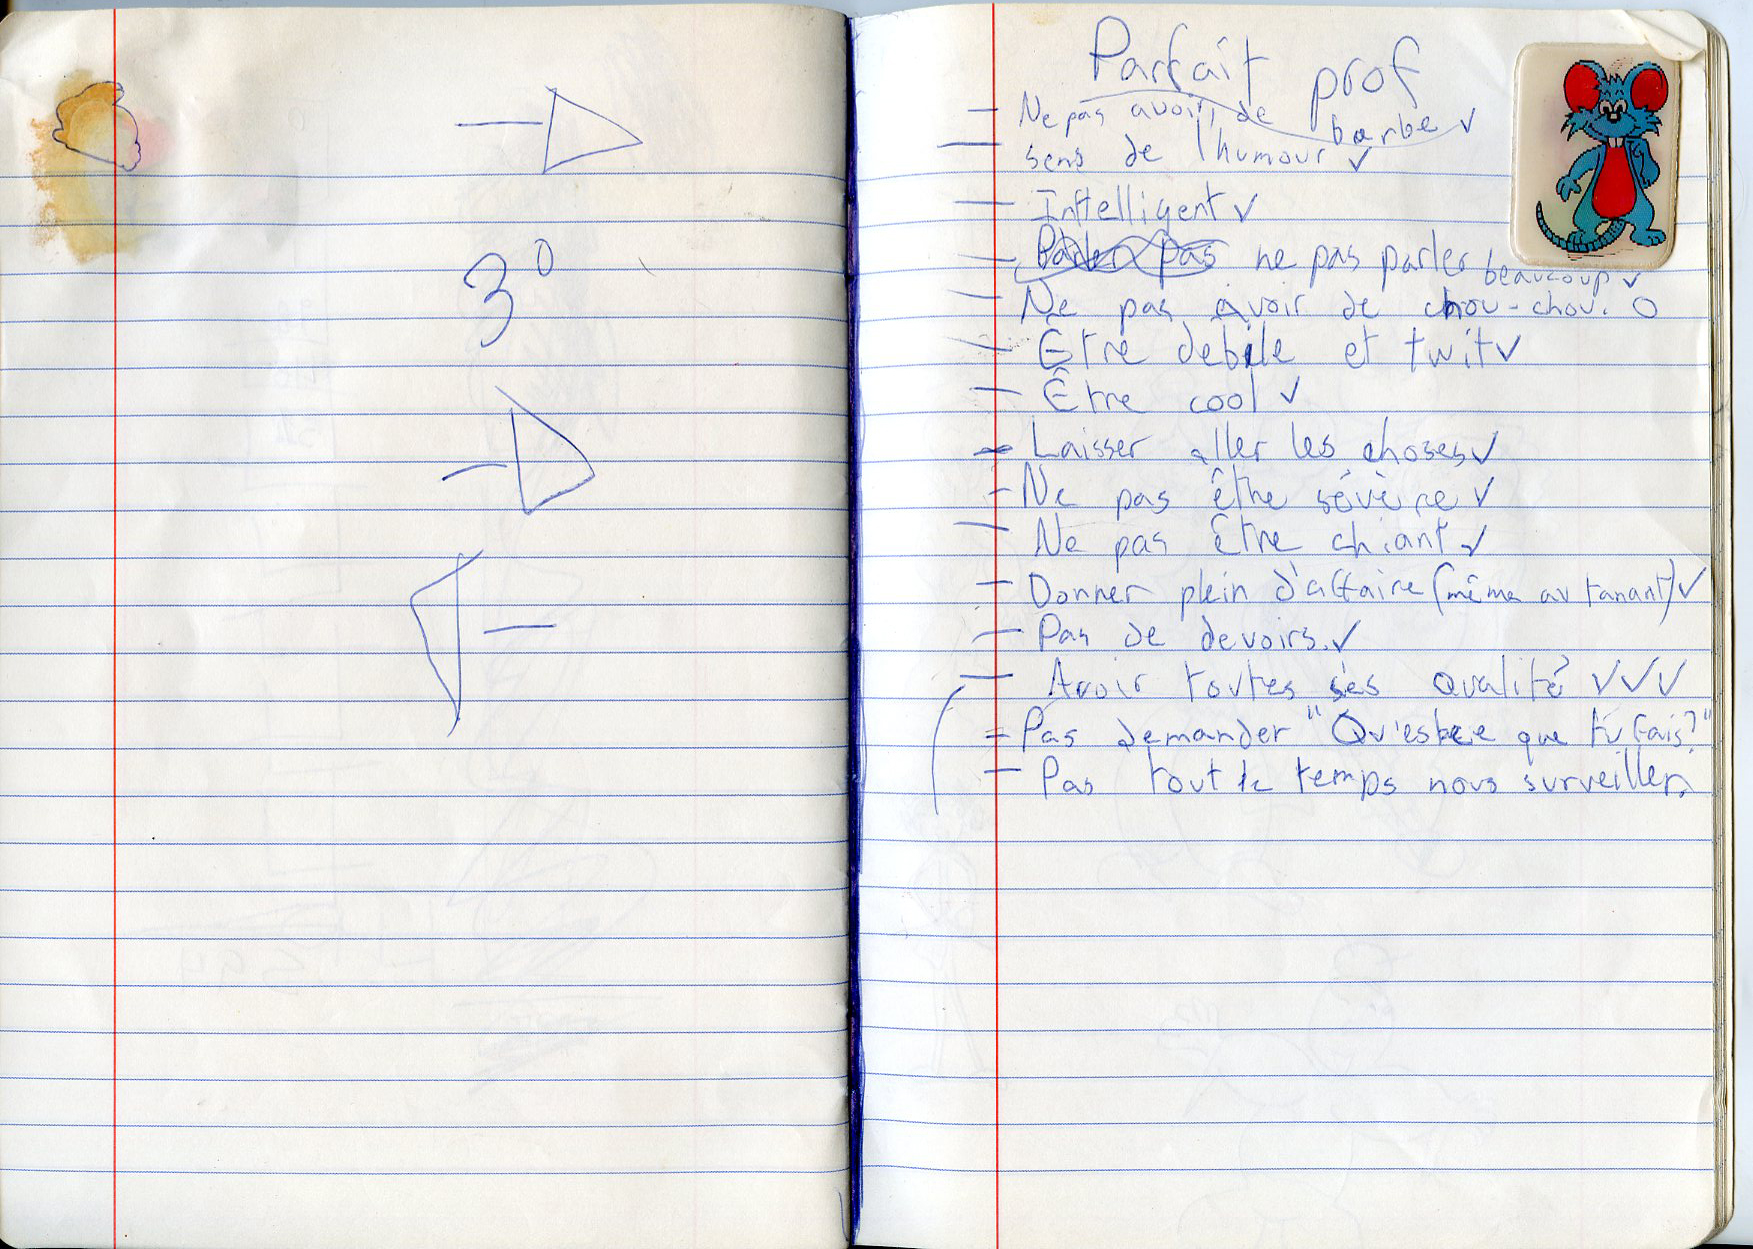 3°
Parfait prof
- Ne pas avoir de barbe ✓
- sens de l'humour ✓
- Intelligent ✓
- Parler pas ne pas parler beaucoup ✓
- Ne pas avoir de chou-chou. O
- Être debile et twit ✓
- Être cool ✓
- Laisser aller les choses ✓
- Ne pas être sévère ✓
- Ne pas être chiant ✓
- Donner plein d'affaire (même au tanant) ✓
- Pas de devoirs. ✓
- Avoir toutes ses qualité ✓✓✓
- Pas demander "Qu'estce que tu fais?"
- Pas tout le temps nous surveiller.